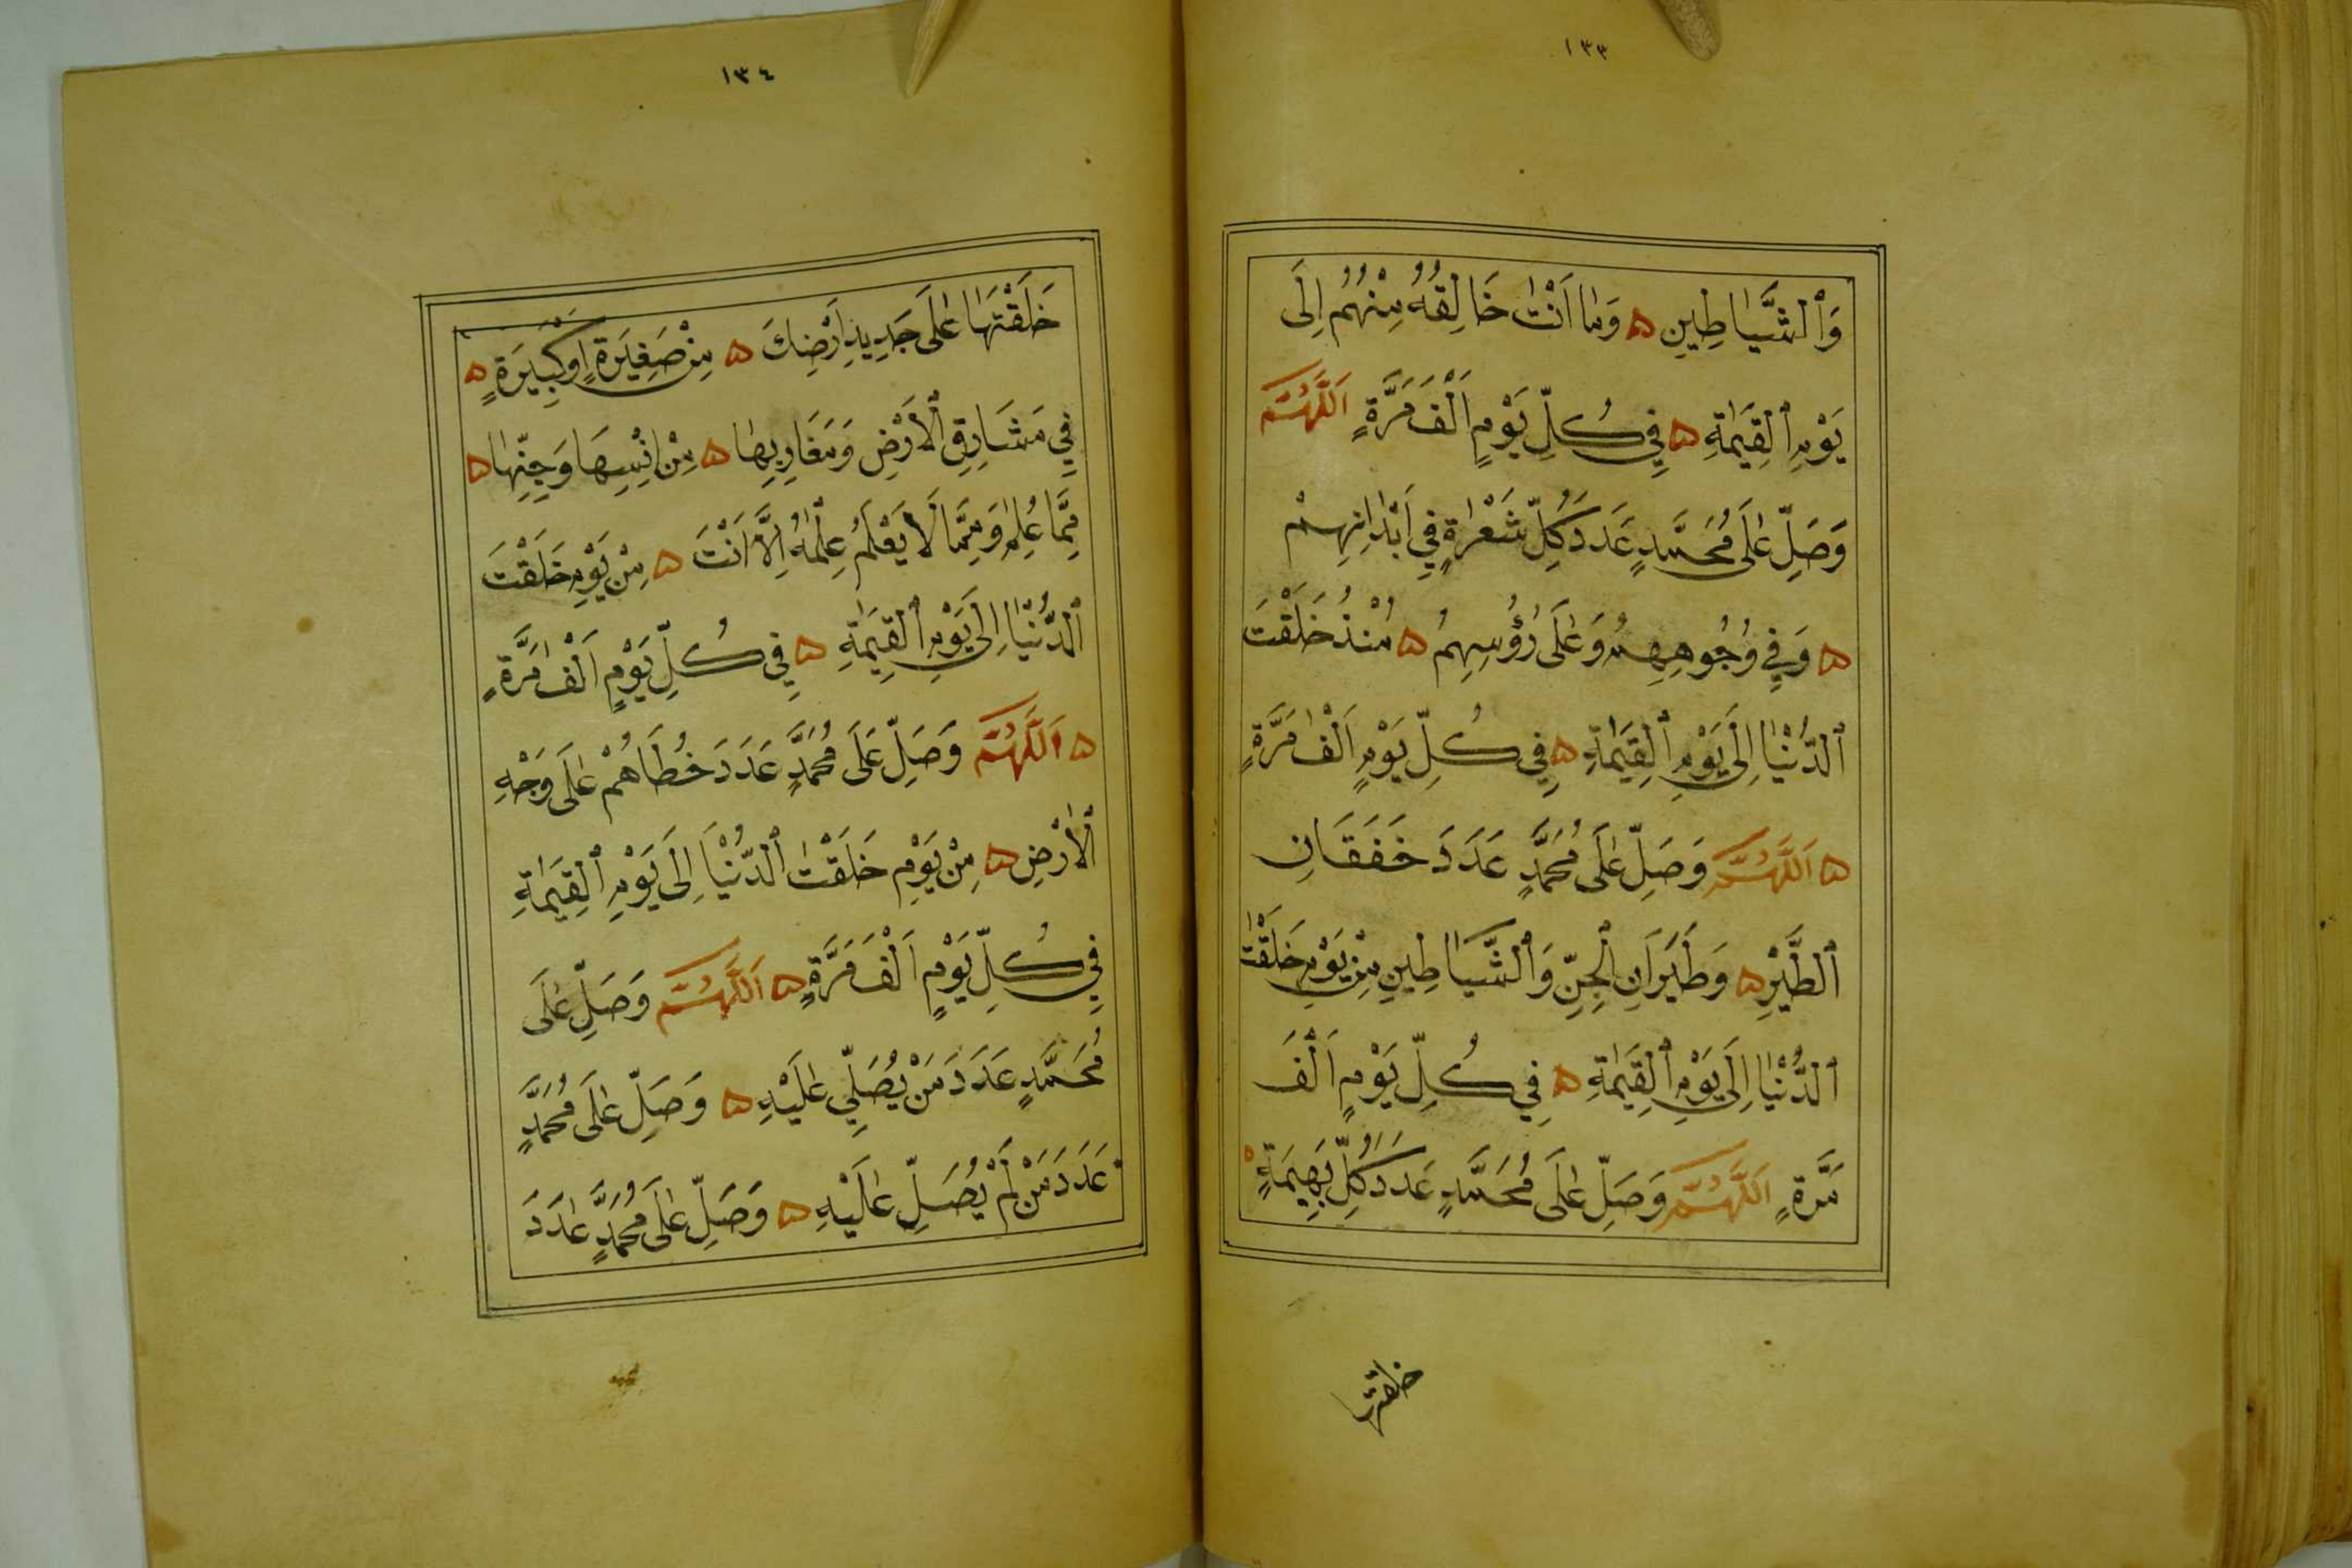 ١٣٣
وَٱلشَّيَاطِينِ ۵ وَمَا اَنْتَ خَالِقُهُ مِنْهُمْ اِلَى
يَوْمِ ٱلْقِيٰمَةِ ۵ فِي كُلِّ يَوْمٍ اَلْفَ مَرَّةٍ اَللّٰهُمَّ
وَصَلِّ عَلَى مُحَمَّدٍ عَدَدَ كُلِّ شَعْرَةٍ فِي اَبْدَانِهِمْ
۵ وَفِي وُجُوهِهِمْ وَعَلَى رُؤُسِهِمْ ۵ مُنْذُ خَلَقْتَ
ٱلدُّنْيَا اِلَى يَوْمِ ٱلْقِيٰمَةِ ۵ فِي كُلِّ يَوْمٍ اَلْفَ مَرَّةٍ
۵ اَللّٰهُمَّ وَصَلِّ عَلَى مُحَمَّدٍ عَدَدَ خَفَقَانِ
ٱلطَّيْرِ ۵ وَطَيَرَانِ ٱلْجِنِّ وَٱلشَّيَاطِينِ مِنْ يَوْمِ خَلَقْتَ
ٱلدُّنْيَا اِلَى يَوْمِ ٱلْقِيٰمَةِ ۵ فِي كُلِّ يَوْمٍ اَلْفَ
مَرَّةٍ اَللّٰهُمَّ وَصَلِّ عَلَى مُحَمَّدٍ عَدَدَ كُلِّ بَهِيمَةٍ ۵
خلقتها
١٣٤
خَلَقْتَهَا عَلَى جَدِيدِ اَرْضِكَ ۵ مِنْ صَغِيَرةٍ اَوْ كَبِيَرةٍ ۵
فِي مَشَارِقِ ٱلْاَرْضِ وَمَغَارِبِهَا ۵ مِنْ اِنْسِهَا وَجِنِّهَا ۵
مِمَّا عُلِمَ وَمِمَّا لَا يَعْلَمُ عِلْمَهُ اِلَّا اَنْتَ ۵ مِنْ يَوْمِ خَلَقْتَ
ٱلدُّنْيَا اِلَى يَوْمِ ٱلْقِيٰمَةِ ۵ فِي كُلِّ يَوْمٍ اَلْفَ مَرَّةٍ
۵ اَللّٰهُمَّ وَصَلِّ عَلَى مُحَمَّدٍ عَدَدَ خُطَاهُمْ عَلَى وَجْهِ
ٱلْاَرْضِ ۵ مِنْ يَوْمِ خَلَقْتَ ٱلدُّنْيَا اِلَى يَوْمِ ٱلْقِيٰمَةِ
فِي كُلِّ يَوْمٍ اَلْفَ مَرَّةٍ ۵ اَللّٰهُمَّ وَصَلِّ عَلَى
مُحَمَّدٍ عَدَدَ مَنْ يُصَلِّي عَلَيْهِ ۵ وَصَلِّ عَلَى مُحَمَّدٍ
عَدَدَ مَنْ لَمْ يُصَلِّ عَلَيْهِ ۵ وَصَلِّ عَلَى مُحَمَّدٍ عَدَدَ